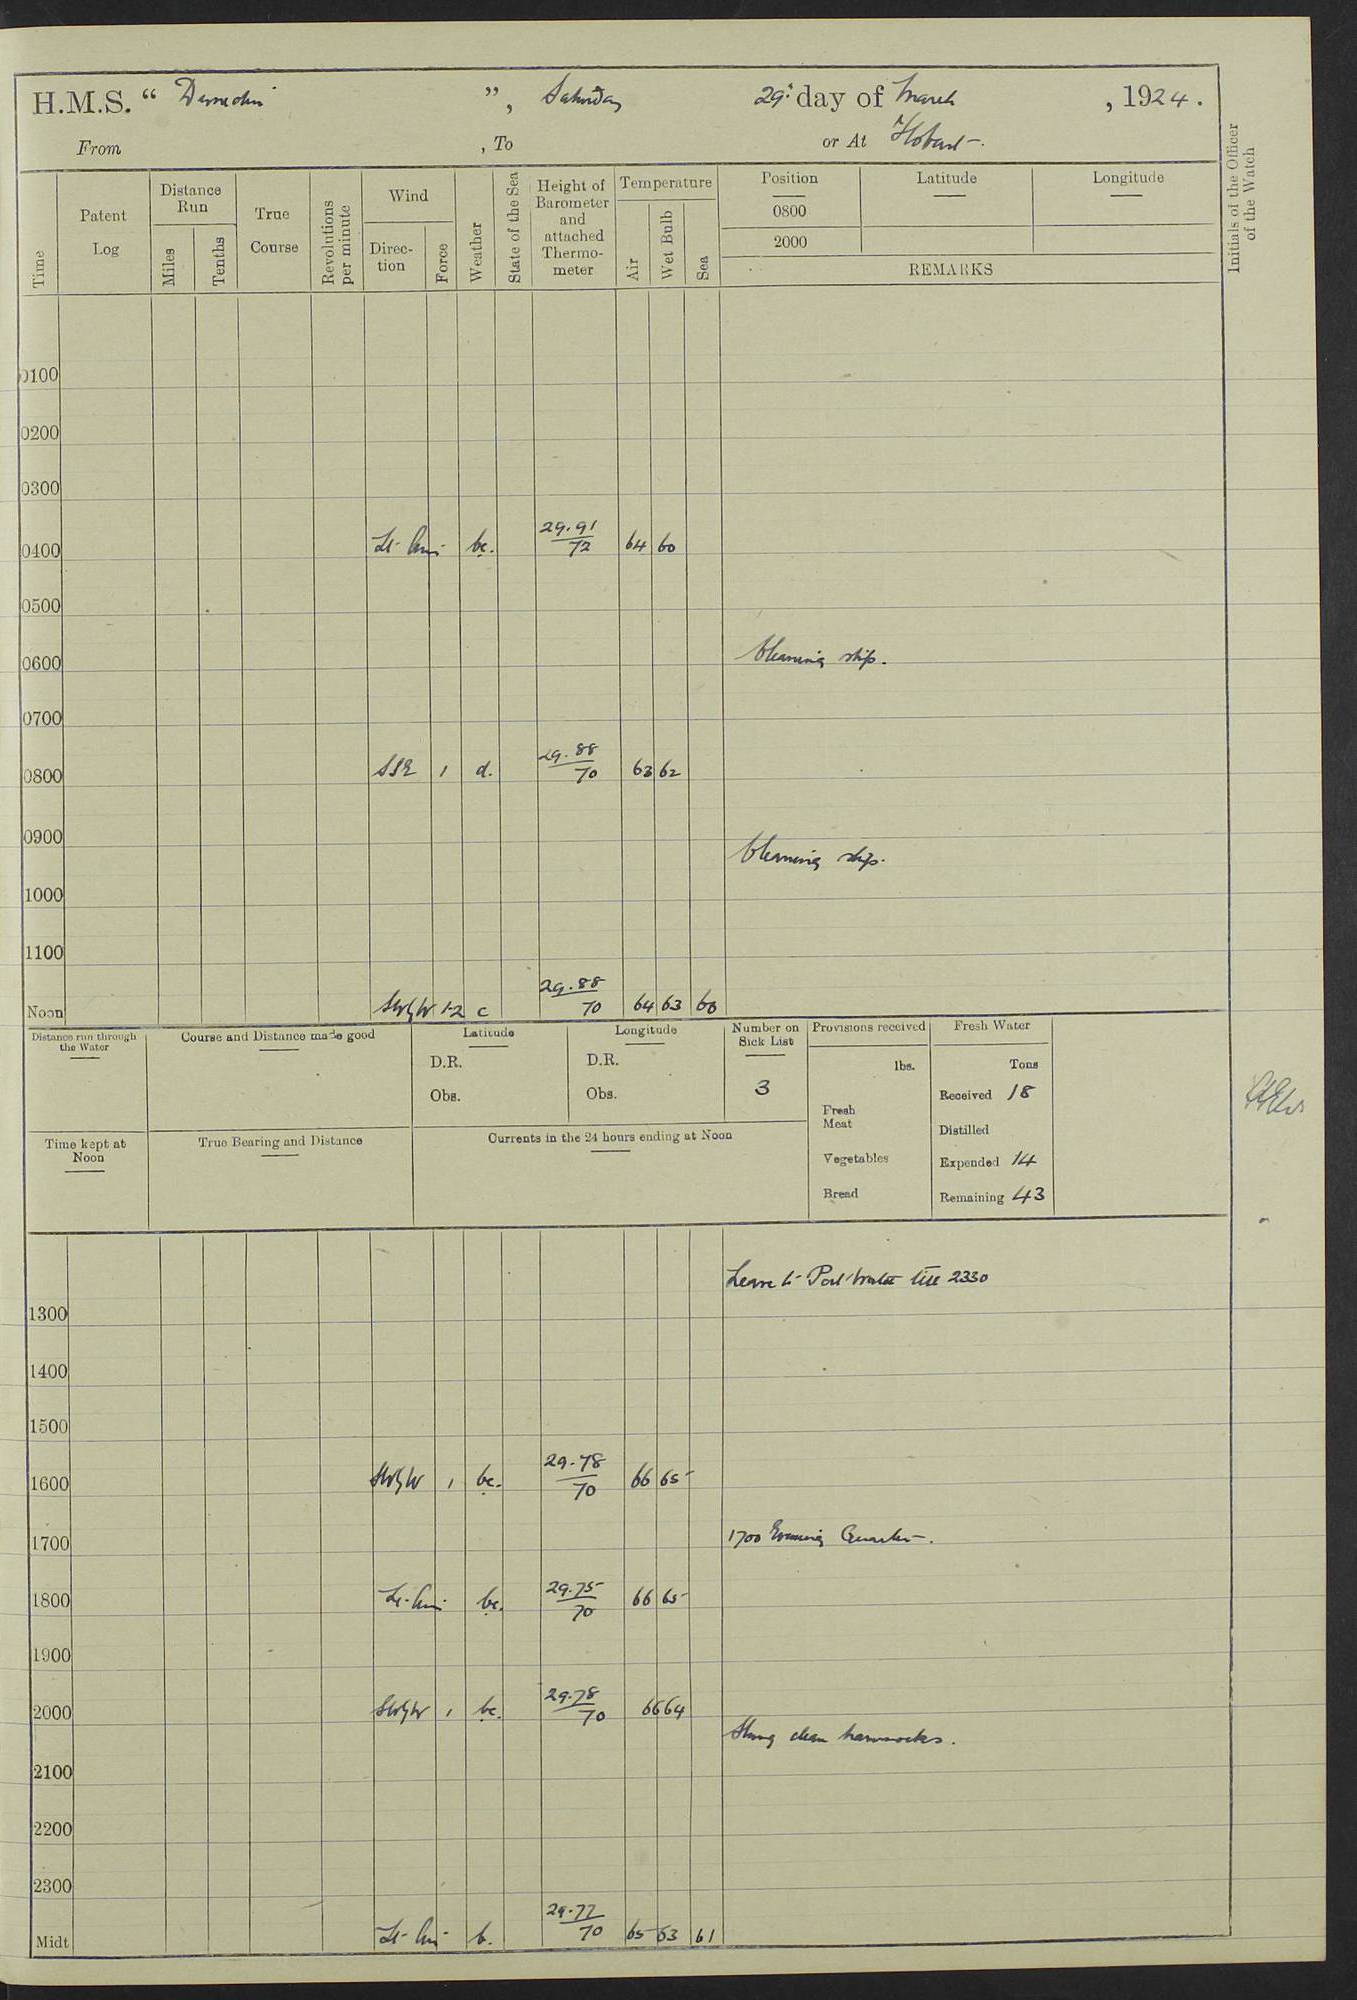 H.M.S. “ ”, Saturday 29. day of March , 1924.
From , To or At Hobart.
Time
Patent Log
Distance Run
Miles
Tenths
True Course
Revolutions per minute
Wind
Direc-tion
Force
Weather
State of the Sea
Height of Barometer and attached Thermo-meter
Temperature
Air
Wet Bulb
Sea
Position Latitude Longitude
0800
2000
REMARKS
Initials of the Officer of the Watch
0100
0200
0300
0400 Lt. Airs bc. 29.91/72 64 60
0500
0600 Cleaning ship.
0700
0800 SSE 1 d. 29.88/70 63 62
0900
Cleaning ship.
1000
1100
Noon SWbyW 1-2 c 29.88/70 64 63 60
Distance run through the Water
Course and Distance made good
Latitude
D.R.
Obs.
Longitude
D.R.
Obs.
Number on Sick List
3
Provisions received
lbs.
Fresh Meat
Vegetables
Bread
Fresh Water
Tons
Received 18
Distilled
Expended 14
Remaining 43
Time kept at Noon
True Bearing and Distance
Currents in the 24 hours ending at Noon
Leave to Port Watch till 2330
1300
1400
1500
1600 SWbyW 1 bc. 29.78/70 66 65
1700 1700 Evening Quarters.
1800 Lt. Airs bc. 29.75/70 66 65
1900
2000 SWbyW 1 bc. 29.78/70 66 64
Slung clean hammocks.
2100
2200
2300
Midt Lt. Airs b. 29.77/70 65 63 61